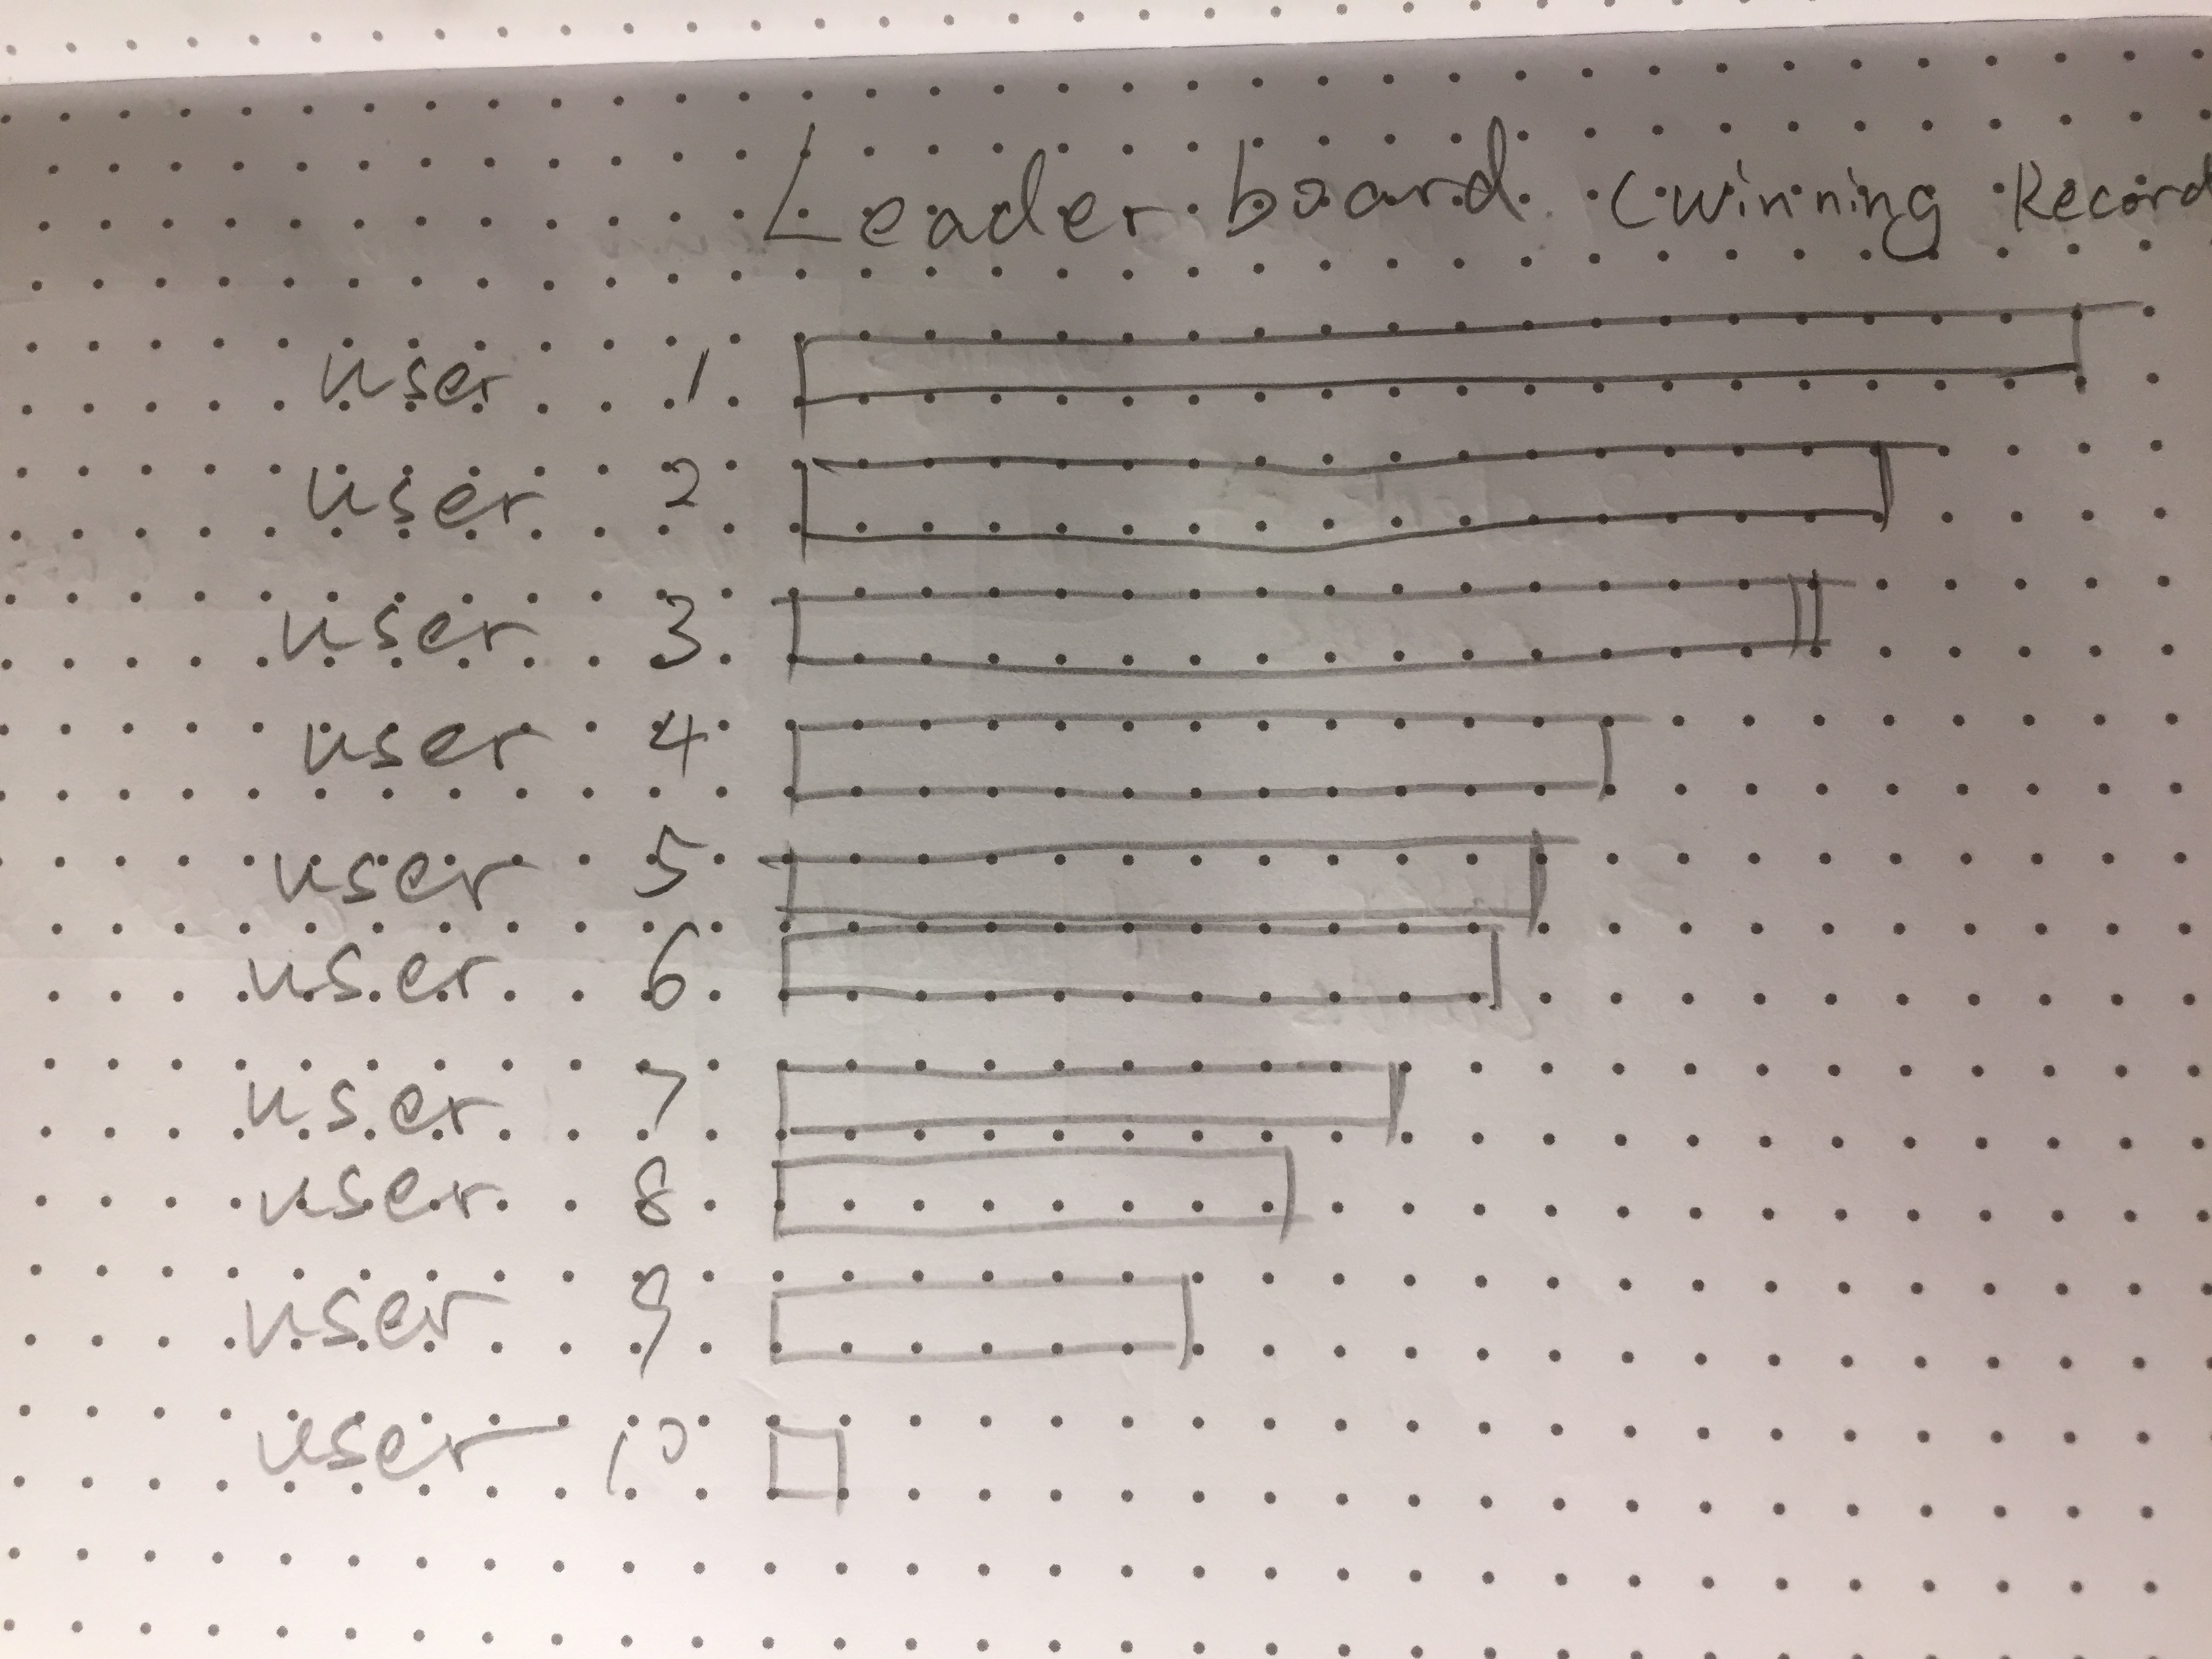 Leader board (winning Record
user 1
user 2
user 3
user 4
user 5
user 6
user 7
user 8
user 9
user 10